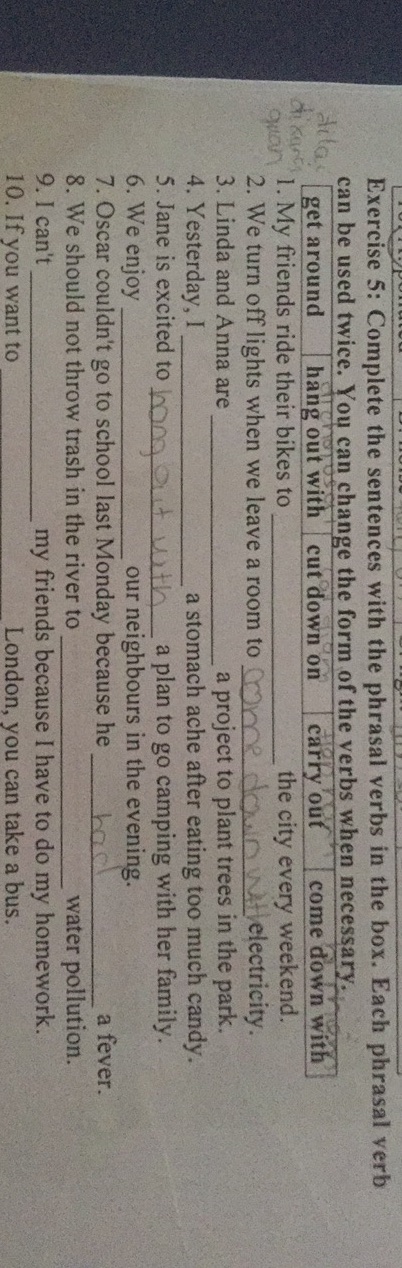 Exercise 5: Complete the sentences with the phrasal verbs in the box. Each phrasal verb
can be used twice. You can change the form of the verbs when necessary.
get around hang out with cut down on carry out come down with
1. My friends ride their bikes to ____________ the city every weekend.
2. We turn off lights when we leave a room to come down with electricity.
3. Linda and Anna are ____________ a project to plant trees in the park.
4. Yesterday, I ____________ a stomach ache after eating too much candy.
5. Jane is excited to hang out with a plan to go camping with her family.
6. We enjoy ____________ our neighbours in the evening.
7. Oscar couldn't go to school last Monday because he had a fever.
8. We should not throw trash in the river to ____________ water pollution.
9. I can't ____________ my friends because I have to do my homework.
10. If you want to ____________ London, you can take a bus.